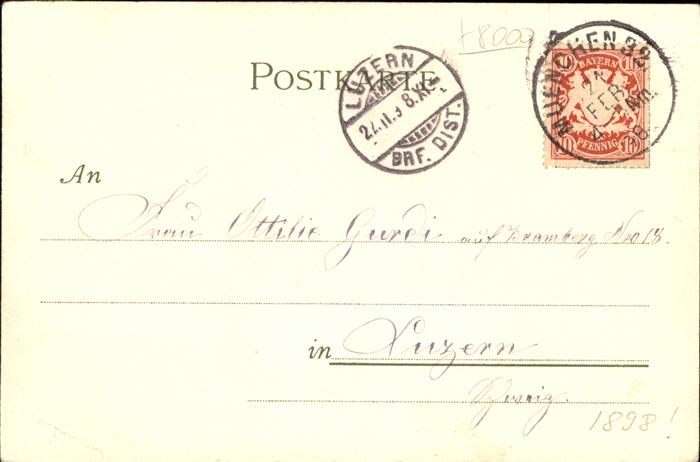 +8000
POSTKARTE
LUZERN
22.II.9 8.XI
BRF. DIST.
MUENCHEN 32
FEB.
4
Nm.
98
10 BAYERN 10
10 PFENNIG 10
An
Frau Ottilie Gurdi auf Kramberg Nro 18.
in Luzern
Schweiz.
1898!